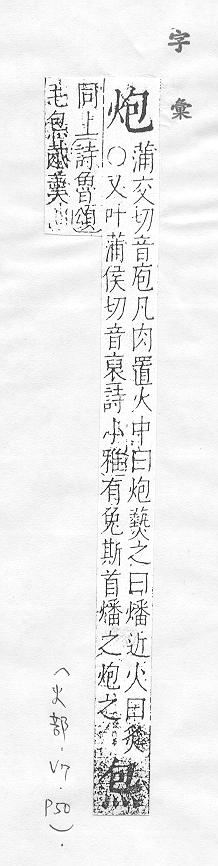 字彙
炮 蒲交切音庖凡肉置火中曰炮爇之曰燔近火曰
○又叶蒲侯切音裒詩小雅有兔斯首燔之炮之 炰
同上詩魯頌
毛炰胾羹
(火部.V7.P50).